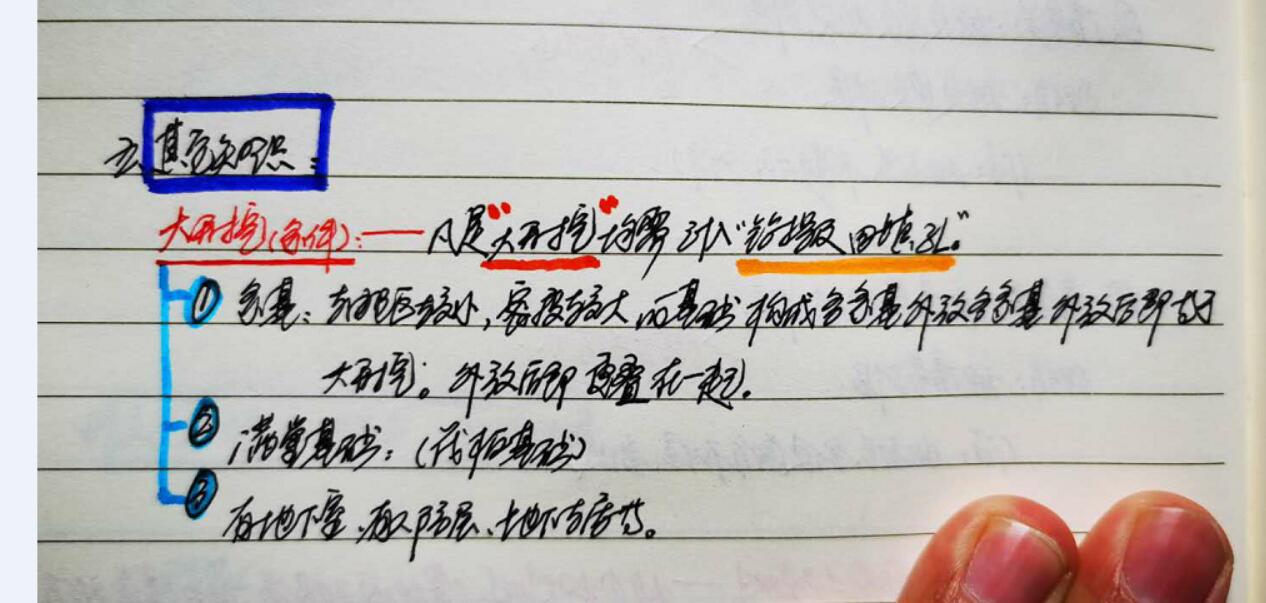 三、其它知识点:
大开挖(条件):——凡是"大开挖"均需引入"综择及回填孔"。
① 条基: 布距较小, 密度较大, 而基础构成多条基外放多条基外放后即
大开挖。外放后即重叠在一起。
② 满堂基础:(筏板基础)
③ 有地下室、有人防层、地下车库等。